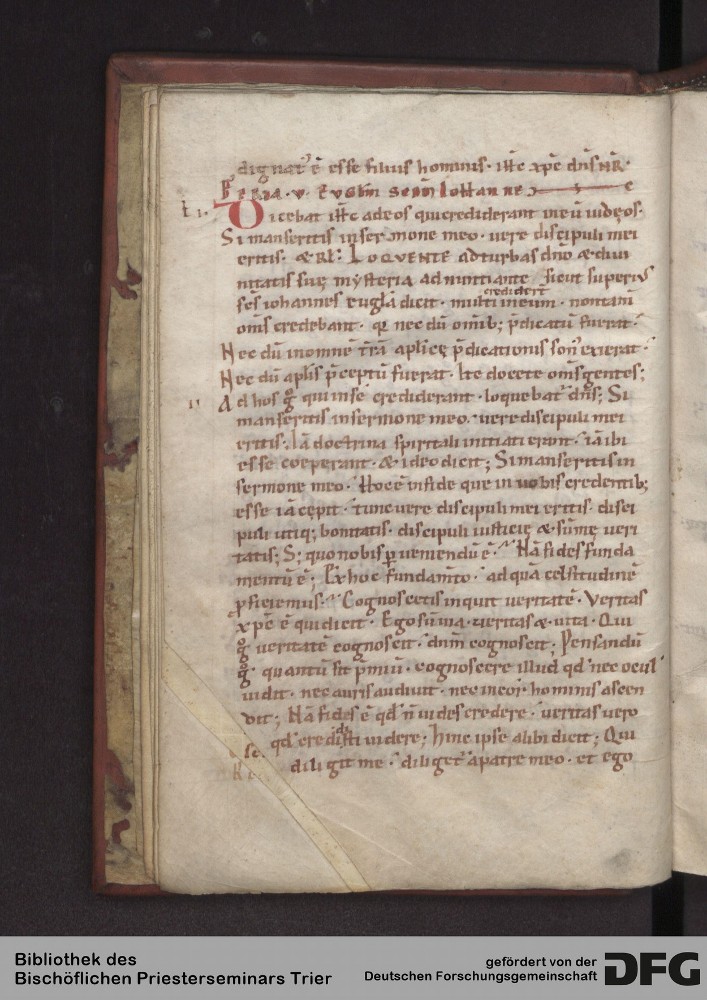 dignat' ē esse filius hominis. iħc xp̄c dn̄s nr̄.
Feria. v. Euḡlm̄ scd̄m Iohanne
L i. Dicebat iħc ad eos qui crediderant in eū iudęos.
Si manseritis in sermone meo. uere discipuli mei
eritis. & Rł. LOQVENTE ad turbas dn̄o & diui
nitatis suę mysteria adnuntiante. sicut superius
sc̄s iohannes eugl̄a dicit. multi crediderr̄t in eum. non tam̄
om̄s credebant. q̄ nec dū omīb; p̄dicatū fuerat.
Nec dū in omnē t̄rā apl̄icę p̄dicationis son' exierat.
Nec dū apl̄is p̄ceptū fuerat. Ite docete om̄s gentes;
ii Ad hos g° qui in se crediderant. loquebat' dn̄s; Si
manseritis in sermone meo. uere discipuli mei
eritis. Iā doctrina spiritali initiati erant. iā ibi
esse coeperant. & ideo dicit; Si manseritis in
sermone meo. Hoc ē in fide que in uobis credentib;
esse iā cępit. tunc uere discipuli mei eritis. disci
puli utiq; bonitatis. discipuli iusticię & sūmę ueri
tatis; S; quo nobis ꝑueniendū ē. Nā fides funda
mentū ē; Ex hoc fundam̄to. ad quā celsitudinē
ꝓficiemus. Cognoscetis inquit ueritatē. Veritas
xp̄c ē qui dicit. Ego sū uia. ueritas &. uita. Qui
g° ueritatē cognoscit. dn̄m cognoscit; Pensandū
g° quantū sit p̄miū. cognoscere illud qd̄ nec ocul'
uidit. nec auris audiuit. nec in cor. hominis ascen
dit; Nā fides ē qd̄ n̄ uides credere. ueritas uero
qd̄ credidisti uidere; Hinc ipse alibi dicit; Qui
diligit me. diliget' a patre meo. et ego
Bibliothek des
Bischöflichen Priesterseminars Trier
gefördert von der
Deutschen Forschungsgemeinschaft
DFG